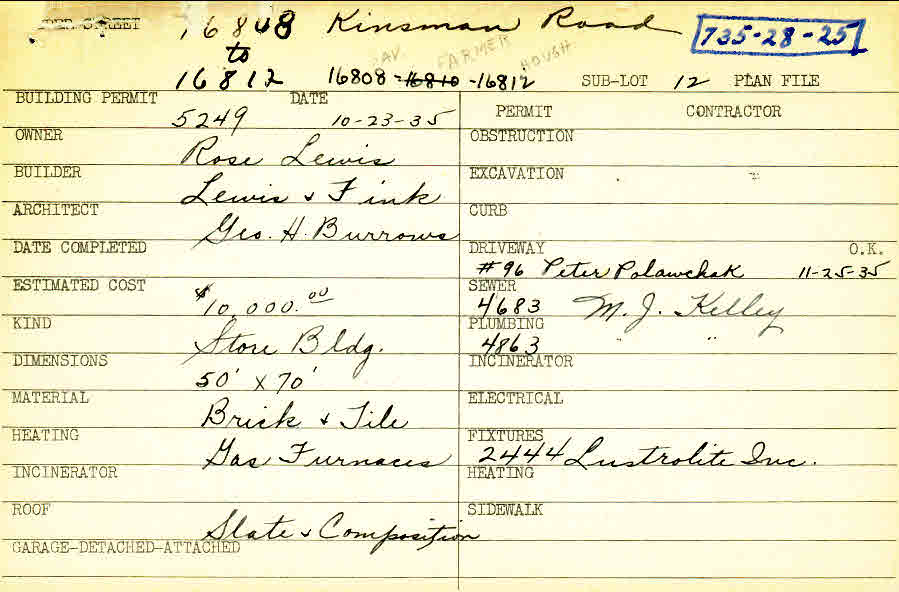 STREET 16808 Kinsman Road 735-28-25
to
FARMER HOUGH
16812 16808-16810-16812 SUB-LOT 12 PLAN FILE
BUILDING PERMIT 5249 DATE 10-23-35 PERMIT CONTRACTOR
OWNER Rose Lewis OBSTRUCTION
BUILDER Lewis & Fink EXCAVATION
ARCHITECT Geo. H. Burrows CURB
DATE COMPLETED DRIVEWAY O.K.
#96 Peter Polawchak 11-25-35
ESTIMATED COST $10,000.00 SEWER
4683 M. J. Kelley
KIND Store Bldg. PLUMBING
4863 " "
DIMENSIONS 50' x 70' INCINERATOR
MATERIAL Brick & Tile ELECTRICAL
HEATING Gas Furnaces FIXTURES
2444 Lustrolite Inc.
INCINERATOR HEATING
ROOF Slate & Composition SIDEWALK
GARAGE-DETACHED-ATTACHED